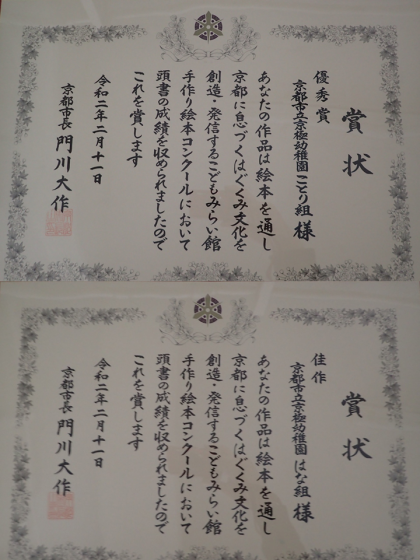 賞状
優秀賞
京都市立京極幼稚園 ことり組 様
あなたの作品は絵本を通し
京都に息づくはぐくみ文化を
創造・発信するこどもみらい館
手作り絵本コンクールにおいて
頭書の成績を収められましたので
これを賞します
令和二年二月十一日
京都市長 門川大作
賞状
佳作
京都市立京極幼稚園 はな組 様
あなたの作品は絵本を通し
京都に息づくはぐくみ文化を
創造・発信するこどもみらい館
手作り絵本コンクールにおいて
頭書の成績を収められましたので
これを賞します
令和二年二月十一日
京都市長 門川大作